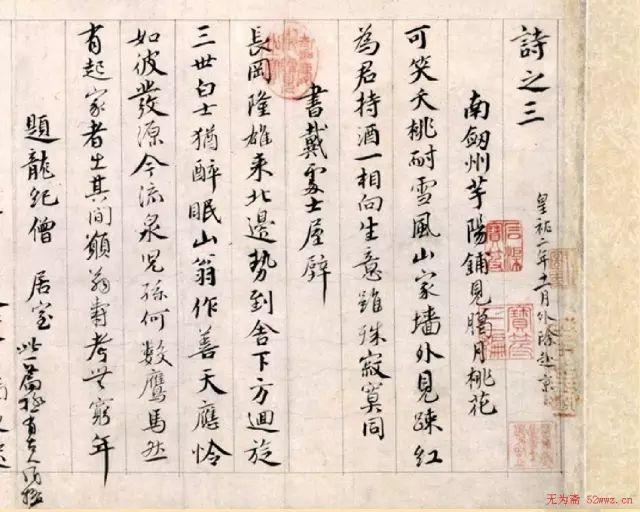 詩之三
皇祐二年十一月外除赴京
南劔州芋陽鋪見臘月桃花
可笑夭桃耐雪風山家墻外見踈紅
為君持酒一相向生意雖殊寂寞同
書戴處士屋壁
長岡隆雄來北邊勢到舍下方迴旋
三世白士猶醉眠山翁作善天應憐
如彼發源今流泉児孫何數鷹馬然
有起家者出其間願翁壽考無窮年
題龍紀僧居室
此一篇極有古人風格
无为斋 52wwz.cn